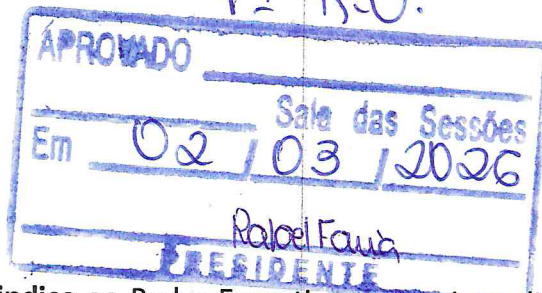 1ª R.O.
APROVADO
Sala das Sessões
Em 02 / 03 / 2026
Rafael Faria
PRESIDENTE